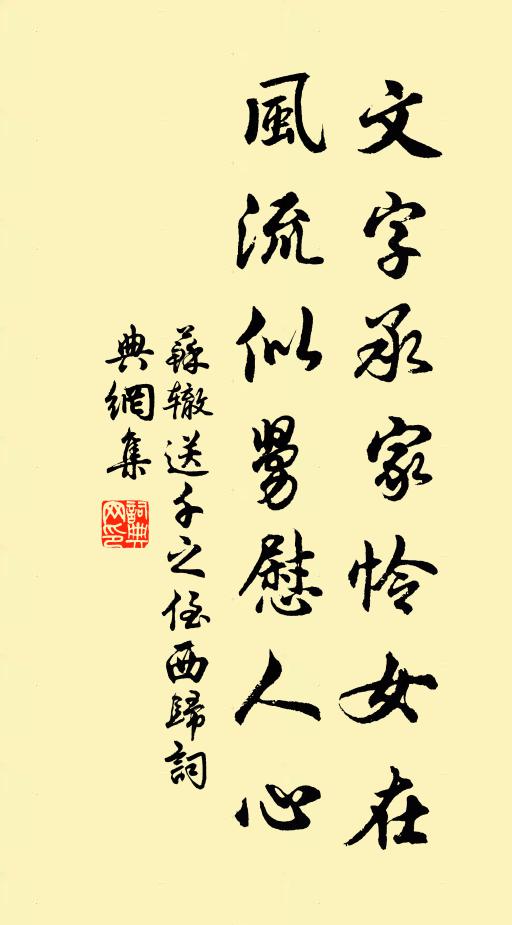 文字承家怜女在
風流似舅慰人心
蘇轍送千之侄西歸詞
典網集
詞典網印